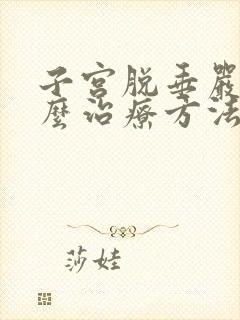 子宮脱垂嚴
麼治療方法
莎娃